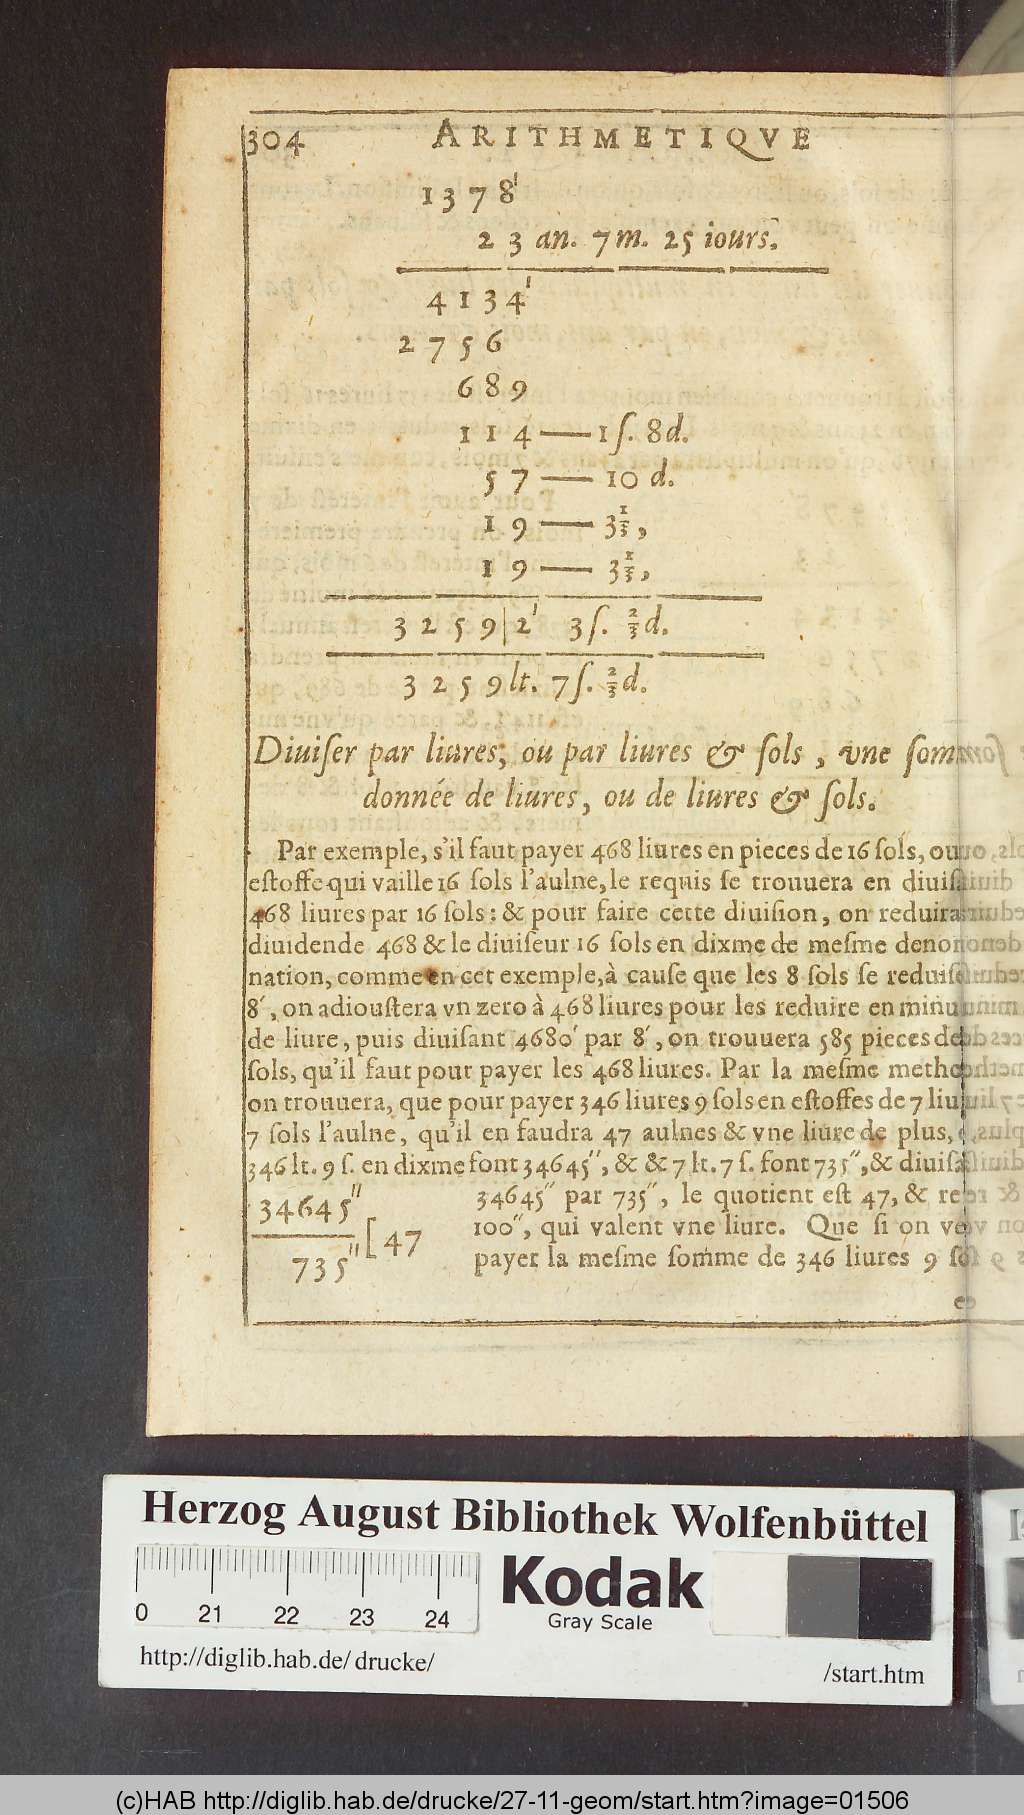 304 ARITHMETIQVE
1378'
23 an. 7 m. 25 iours.
4134'
2756
689
114 — 1 ſ. 8 d.
57 — 10 d.
19 — 3 1/3,
19 — 3 1/3,
3259|2' 3 ſ. 2/3 d.
3259 lt. 7 ſ. 2/3 d.
Diuiſer par liures, ou par liures & ſols, vne
donnée de liures, ou de liures & ſols.
Par exemple, s'il faut payer 468 liures en pieces de 16 ſols, ou
eſtoffe qui vaille 16 ſols l'aulne, le requis ſe trouuera en
468 liures par 16 ſols: & pour faire cette diuiſion, on reduira
diuidende 468 & le diuiſeur 16 ſols en dixme de meſme
nation, comme en cet exemple, à cauſe que les 8 ſols ſe
8', on adiouſtera vn zero à 468 liures pour les reduire en
de liure, puis diuiſant 4680' par 8', on trouuera 585 pieces de
ſols, qu'il faut pour payer les 468 liures. Par la meſme
on trouuera, que pour payer 346 liures 9 ſols en eſtoffes de 7
7 ſols l'aulne, qu'il en faudra 47 aulnes & vne liure de plus,
346 lt. 9 ſ. en dixme font 34645'', & & 7 lt. 7 ſ. font 735'', &
34645'' par 735'', le quotient eſt 47, &
100'', qui valent vne liure. Que ſi on
payer la meſme ſom̃me de 346 liures 9
34645''
735'' [47
Herzog August Bibliothek Wolfenbüttel
0 21 22 23 24
Kodak
Gray Scale
http://diglib.hab.de/drucke/ /start.htm
(c)HAB http://diglib.hab.de/drucke/27-11-geom/start.htm?image=01506